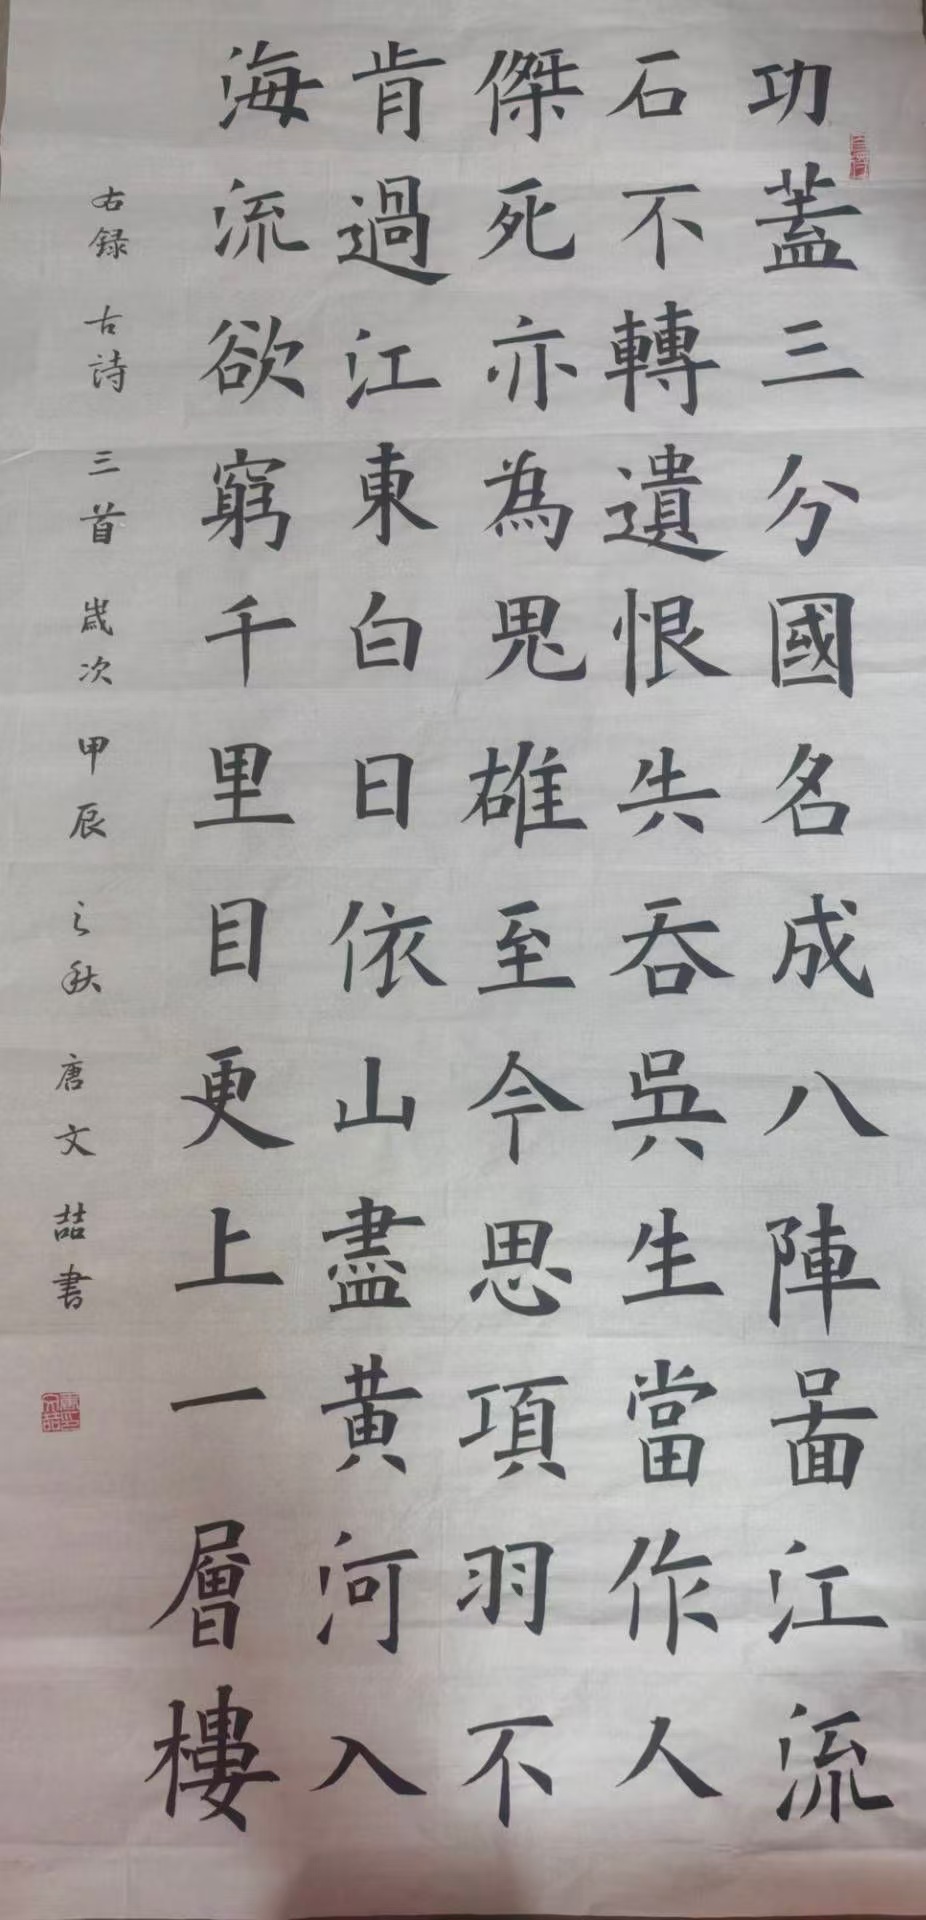 功蓋三分國名成八陣啚江流
石不轉遺恨失吞吳生當作人
傑死亦為鬼雄至今思項羽不
肯過江東白日依山盡黄河入
海流欲窮千里目更上一層樓
右録古詩三首歲次甲辰之秋唐文喆書